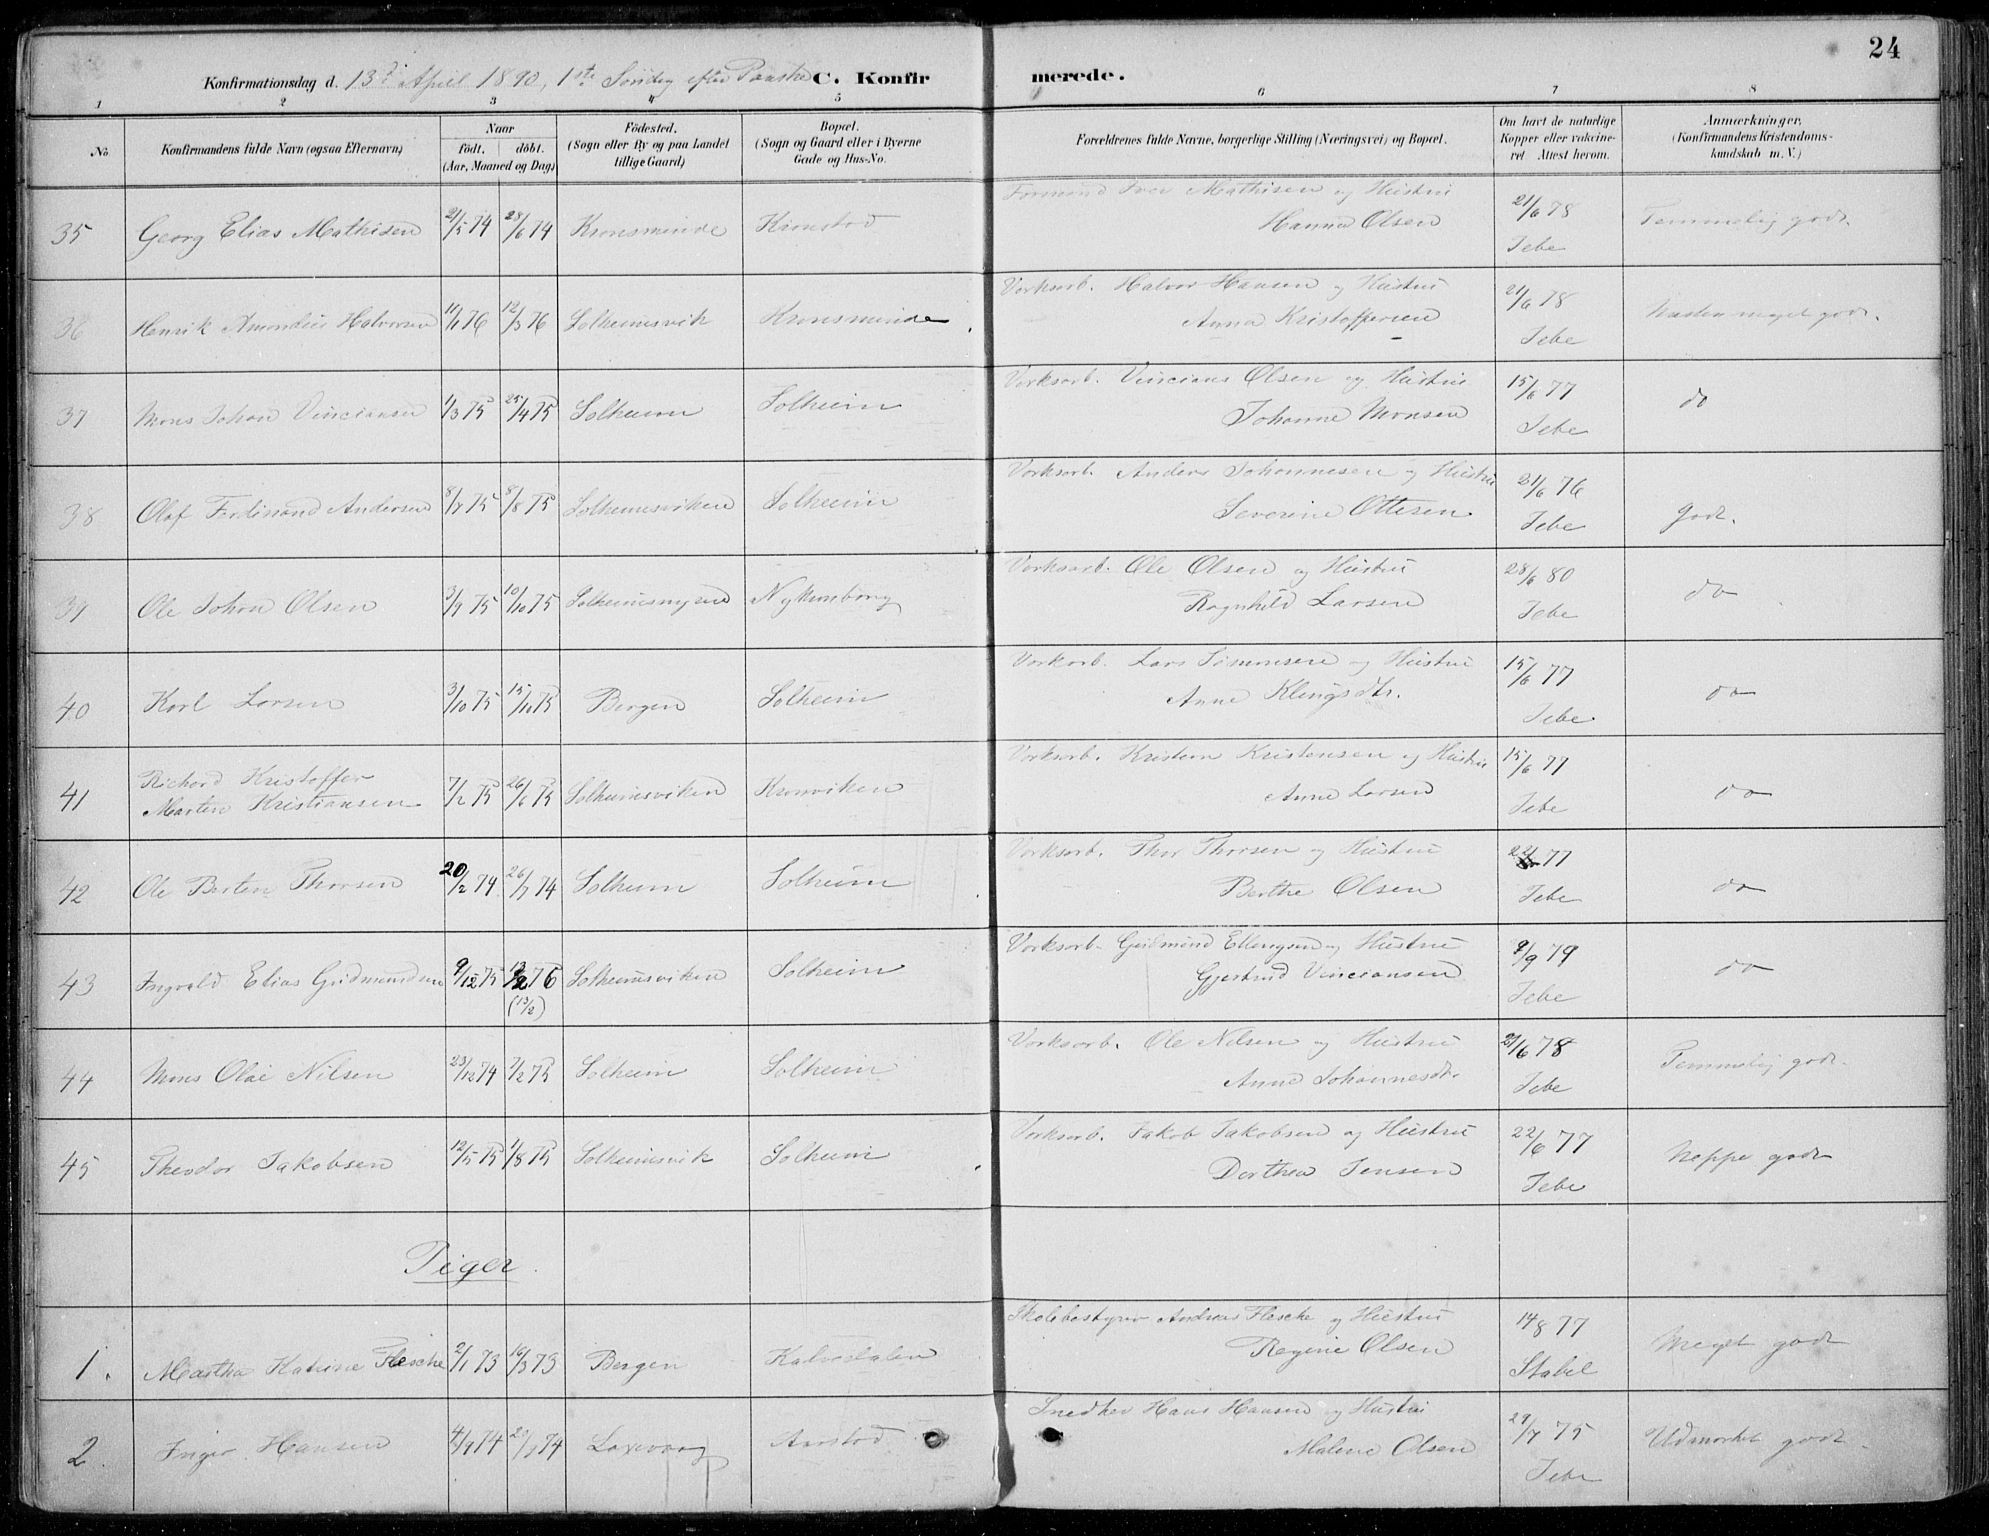 24
Konfirmationsdag d. 13de April 1890, 1ste Søndag efter Paaske C. Konfirmerede.
1 2 3 4 5 6 7 8
No
Konfirmandens fulde Navn (ogsaa Efternavn)
Naar
født. døbt.
(Aar, Maaned og Dag)
Födested.
(Sogn eller By og paa Landet
tillige Gaard)
Bopæl.
(Sogn og Gaard eller i Byerne
Gade og Hus-No.
Forældrenes fulde Navne, borgerlige Stilling (Næringsvei) og Bopæl.
Om havt de naturlige
Kopper eller vakcine-
ret Attest herom.
Anmærkninger,
(Konfirmandens Kristendoms-
kundskab m. V.)
35 Georg Elias Mathisen 21/5 74 28/6 74 Kronsminde Kronstad Formand Iver Mathisen og Hustru 21/6 78 Temmelig godt.
Hanna Olsen Jebe
36 Henrik Amandus Halvorsen 11/1 76 12/3 76 Solheimsvik Kronsminde Verksarb. Halvor Hansen og Hustru 21/6 78 Næsten meget godt.
Anna Kristoffersen Jebe
37 Mons Johan Vinciansen 1/3 75 25/4 75 Solheim Solheim Verksarb. Vincians Olsen og Hustru 15/6 77 do
Johanne Monsen Jebe
38 Olaf Ferdinand Andersen 8/7 75 8/8 75 Solheimsviken Solheim Verksarb. Anders Johannesen og Hustru 21/6 76 godt.
Severine Ottesen Jebe
39 Ole Johan Olsen 3/9 75 10/10 75 Solheimsmyren Nykronborg Verksarb. Ole Olsen og Hustru 28/6 80 do
Ragnhild Larsen Jebe
40 Karl Larsen 3/10 75 15/10 75 Bergen Solheim Verksarb. Lars Simonsen og Hustru 15/6 77 do
Anne Klingsdtr. Jebe
41 Richard Kristoffer
Martin Kristiansen 7/2 75 26/6 75 Solheimsviken Kronviken Verksarb. Kristian Kristensen og Hustru 15/6 77 do
Anne Larsen Jebe
42 Ole Bertin Thorsen 20/2 74 26/7 74 Solheim Solheim Verksarb. Thor Thorsen og Hustru 77 do
Berthe Olsen Jebe
43 Ingvald Elias Gudmundsen 9/12 75 13/2 76 (13/2) Solheimsviken Solheim Verksarb. Gudmund Ellingsen og Hustru 9/9 79 do
Gjertrud Vinciansen Jebe
44 Mons Olai Nilsen 23/12 74 7/2 75 Solheim Solheim Verksarb. Ole Nilsen og Hustru 21/6 78 Temmelig godt.
Anne Johannesdtr. Jebe
45 Theodor Jakobsen 12/5 75 1/8 75 Solheimsvik Solheim Verksarb. Jakob Jakobsen og Hustru 22/6 77 Neppe godt
Dorthea Jensen Jebe
Piger.
1. Martha Katrine Flesche 2/1 73 16/3 73 Bergen Kalvedalen Skolebestyrer Andreas Flesche og Hustru 14/8 77 Meget godt
Regine Olsen Stabel
2. Inger Hansen 4/7 74 74 Laxevaag Aarstad Snedker Hans Hansen og Hustru 29/7 75 Udmærket godt.
Malene Olsen Jebe